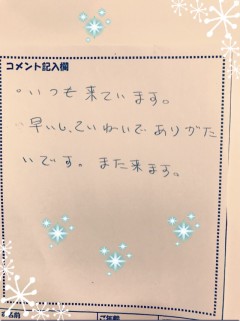 コメント記入欄
。いつも来ています。
早いし、ていねいでありがた
いです。また来ます。
お名前 ご年齢